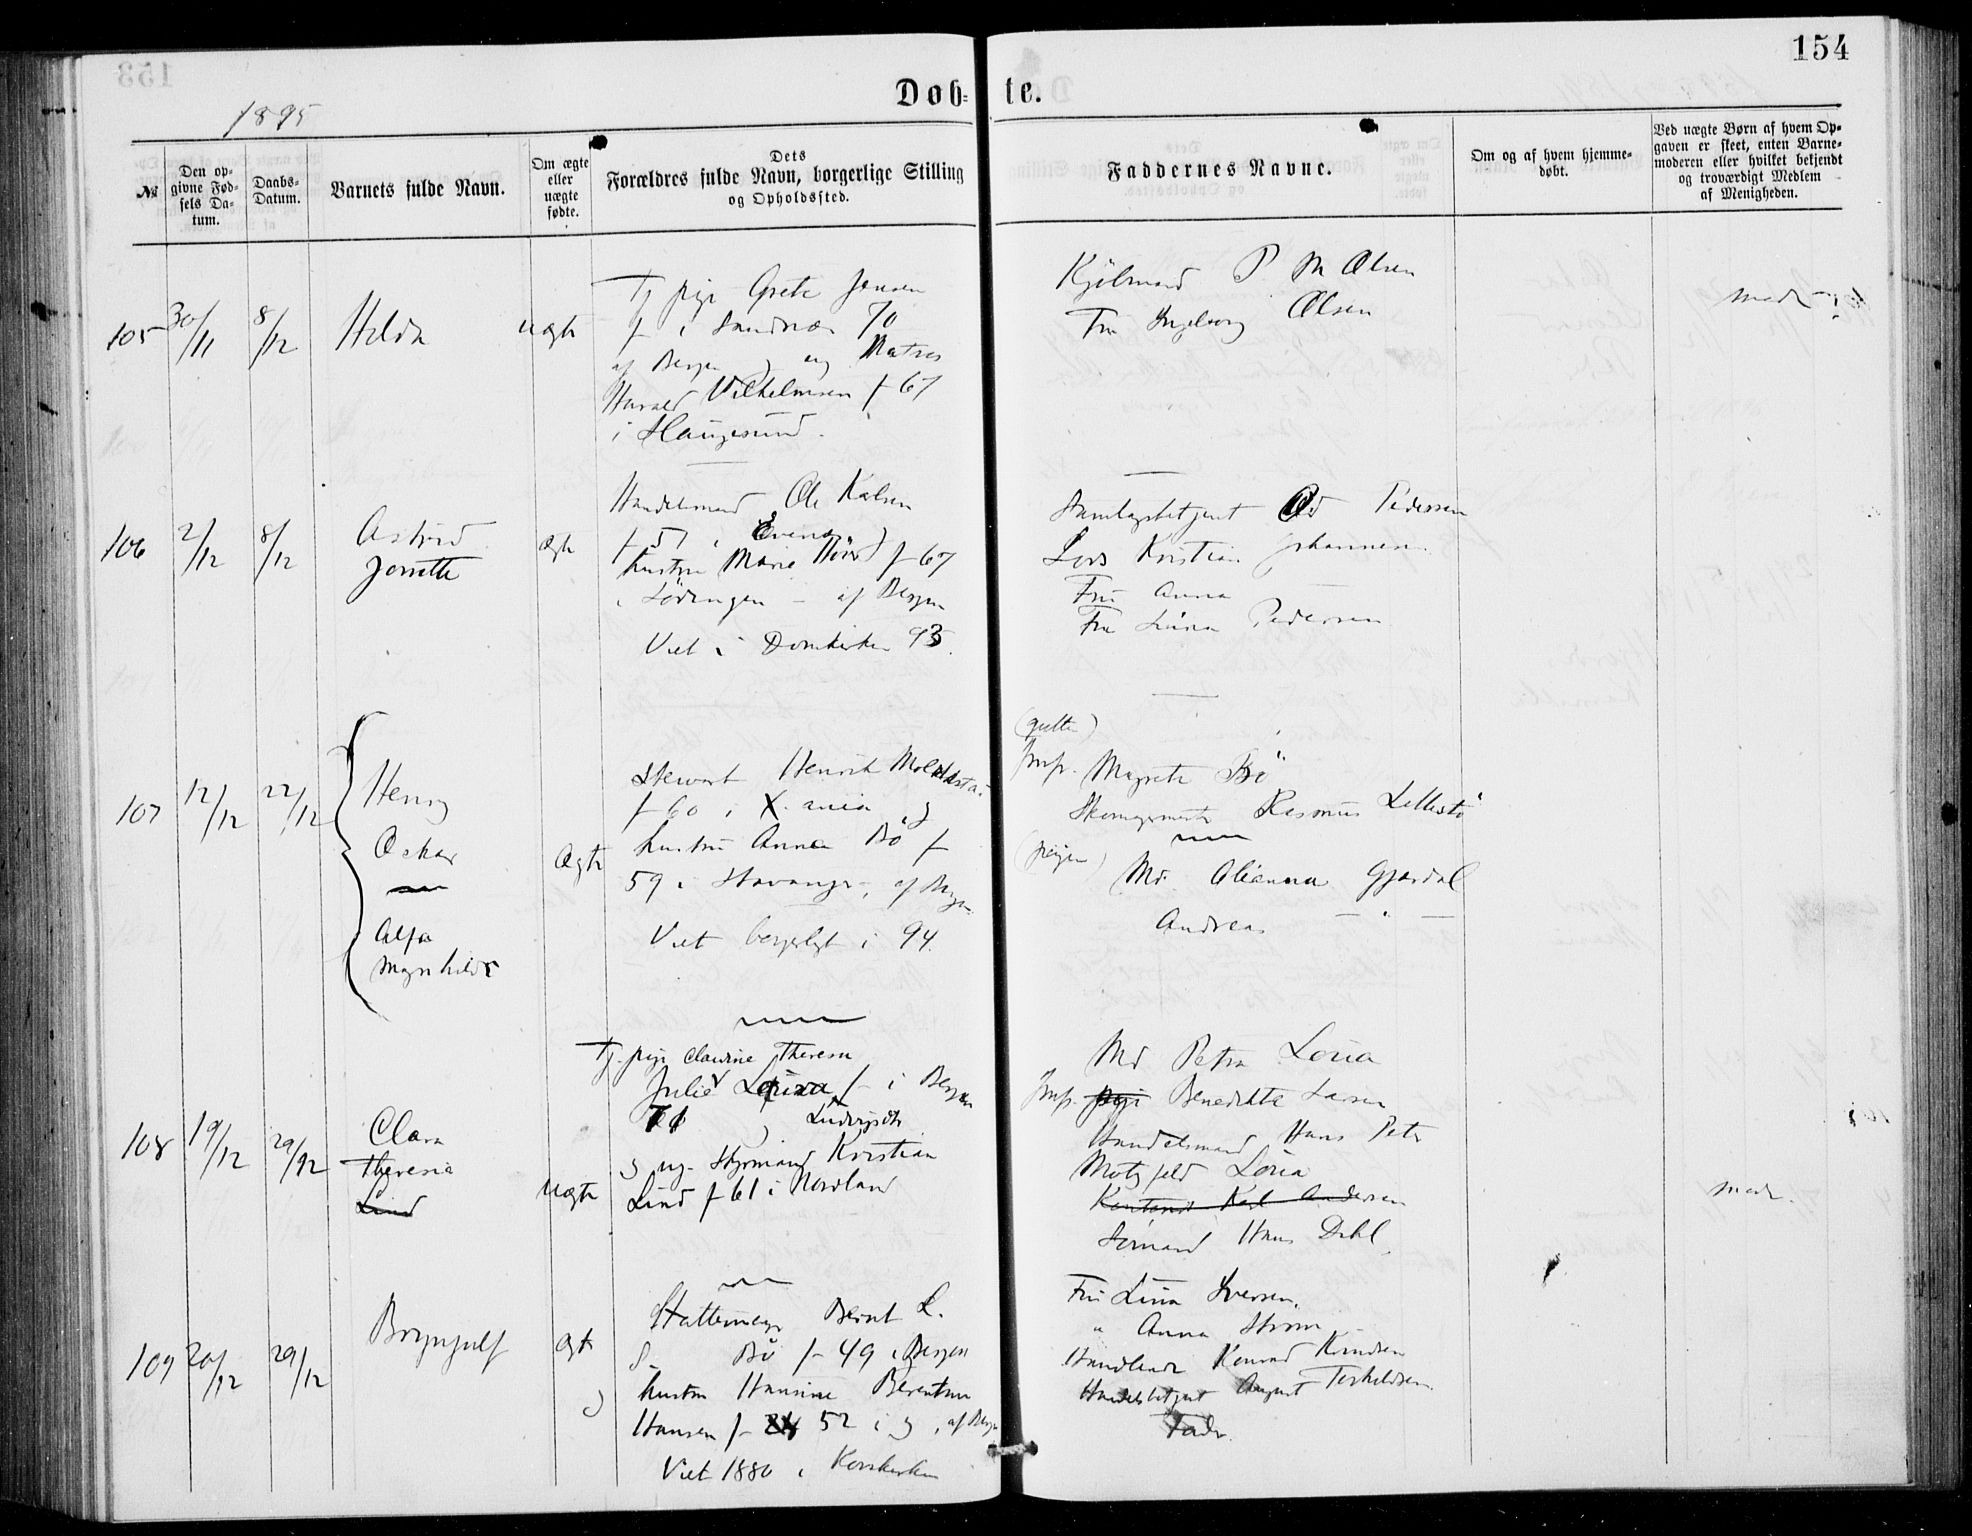 154
Døb= te.
1895
№
Den op=
givne Fød=
sels Da=
tum.
Daabs=
Datum.
Barnets fulde Navn.
Om ægte
eller
uægte
fødte.
Dets
Forældres fulde Navn, borgerlige Stilling
og Opholdssted.
Faddernes Navne.
Om og af hvem hjemme=
døbt.
Ved uægte Børn af hvem Op=
gaven er skeet, enten Barne=
moderen eller hvilket bekjendt
og troværdigt Medlem
af Menigheden.
105
30/11
8/12
Hilda
uægte
Tj pige Grete Jensen
f i Sandnæs 70
af Bergen og ug Matros
Harald Vilhelmsen f 67
i Haugesund.
P M Olsen
Fru Ingeborg Olsen
106
2/12
8/12
Astrid
Jonette
ægte
Handelsmand Ole
f 57 i
hustru Marie f 67
i Lødingen - af Bergen
Viet i Domkirken 93.
Pedersen
Lods Kristian Johannesen
Fru Anna
Fru Lina Pedersen
107
12/12
22/12
Henry
Oskar
Alfa
Magnhilde
Ægte
Stewart Henrik
f 60 i X.ania og
hustru Anna Bö f
59 i Stavanger, af Bergen
Viet borgerligt i 94.
(gutten)
Jmf. Magrete Bö
Skomagermester Rasmus
(pigen)
Md. Olianna Gjerdal
Andreas — " —
108
19/12
29/12
Clara
Theresia
Lind
uægte
Tj. pige Claudine Theresia
Julie Louisa f i Bergen
71
og ug. Styrmand Kristian Ludvigsen
Lind f 61 i Nordland
Md Petra Loria
Jmf. pige Benedikte Larsen
Handelsmand Hans Peter
Motzfeld Loria
Karl Andersen
Sømand Hans Dahl
109
20/12
29/12
Brynjulf
ægte
Hattemager Bernt L.
Bö f 49 i Bergen
og hustru Hansine Berentine
Hansen f 52 i , af Bergen
Viet 1880 i Korskirken
Fru Lina Iversen.
" Anna Strøm
Handlende Konrad Knudsen
Handelsbetjent August Terkildsen.
Fader.